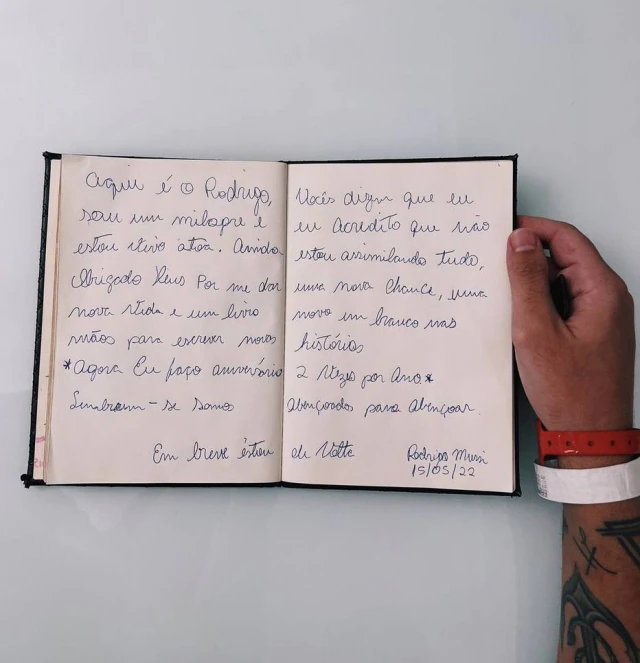 Aqui é o Rodrigo, Vocês dizem que eu
sou um milagre e eu Acredito que não
estou vivo atoa. Ainda estou assimilando tudo,
Obrigado Deus Por me dar uma nova chance, uma
nova vida e um livro novo em branco nas
mãos para escrever novas histórias
*Agora Eu faço aniversário 2 Vezes por Ano*
Lembrem-se somos Abençoados para Abençoar.
Em breve estou de Volta Rodrigo Mussi
15/05/22